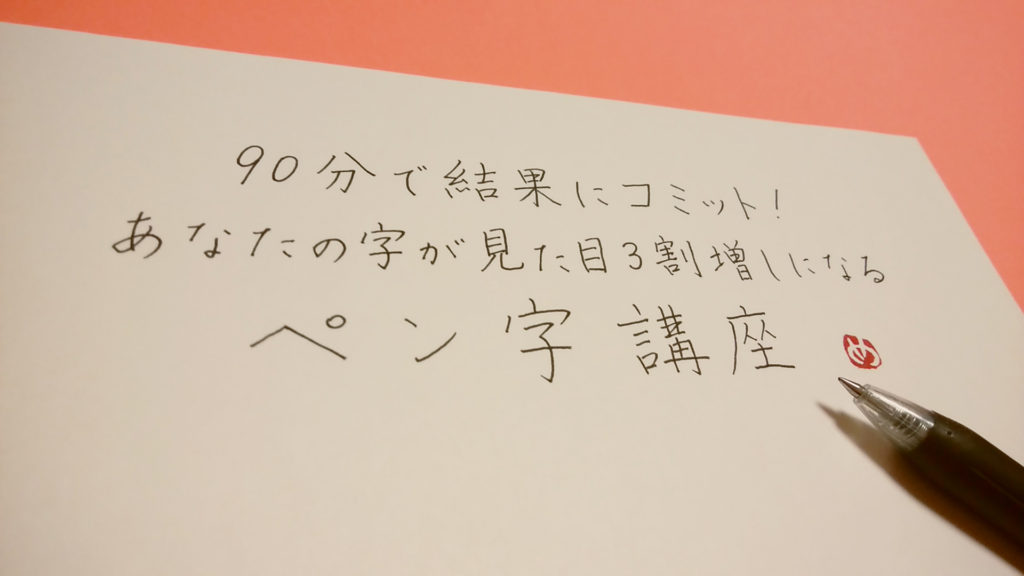 90分で結果にコミット!
あなたの字が見た目3割増しになる
ペン字講座
め